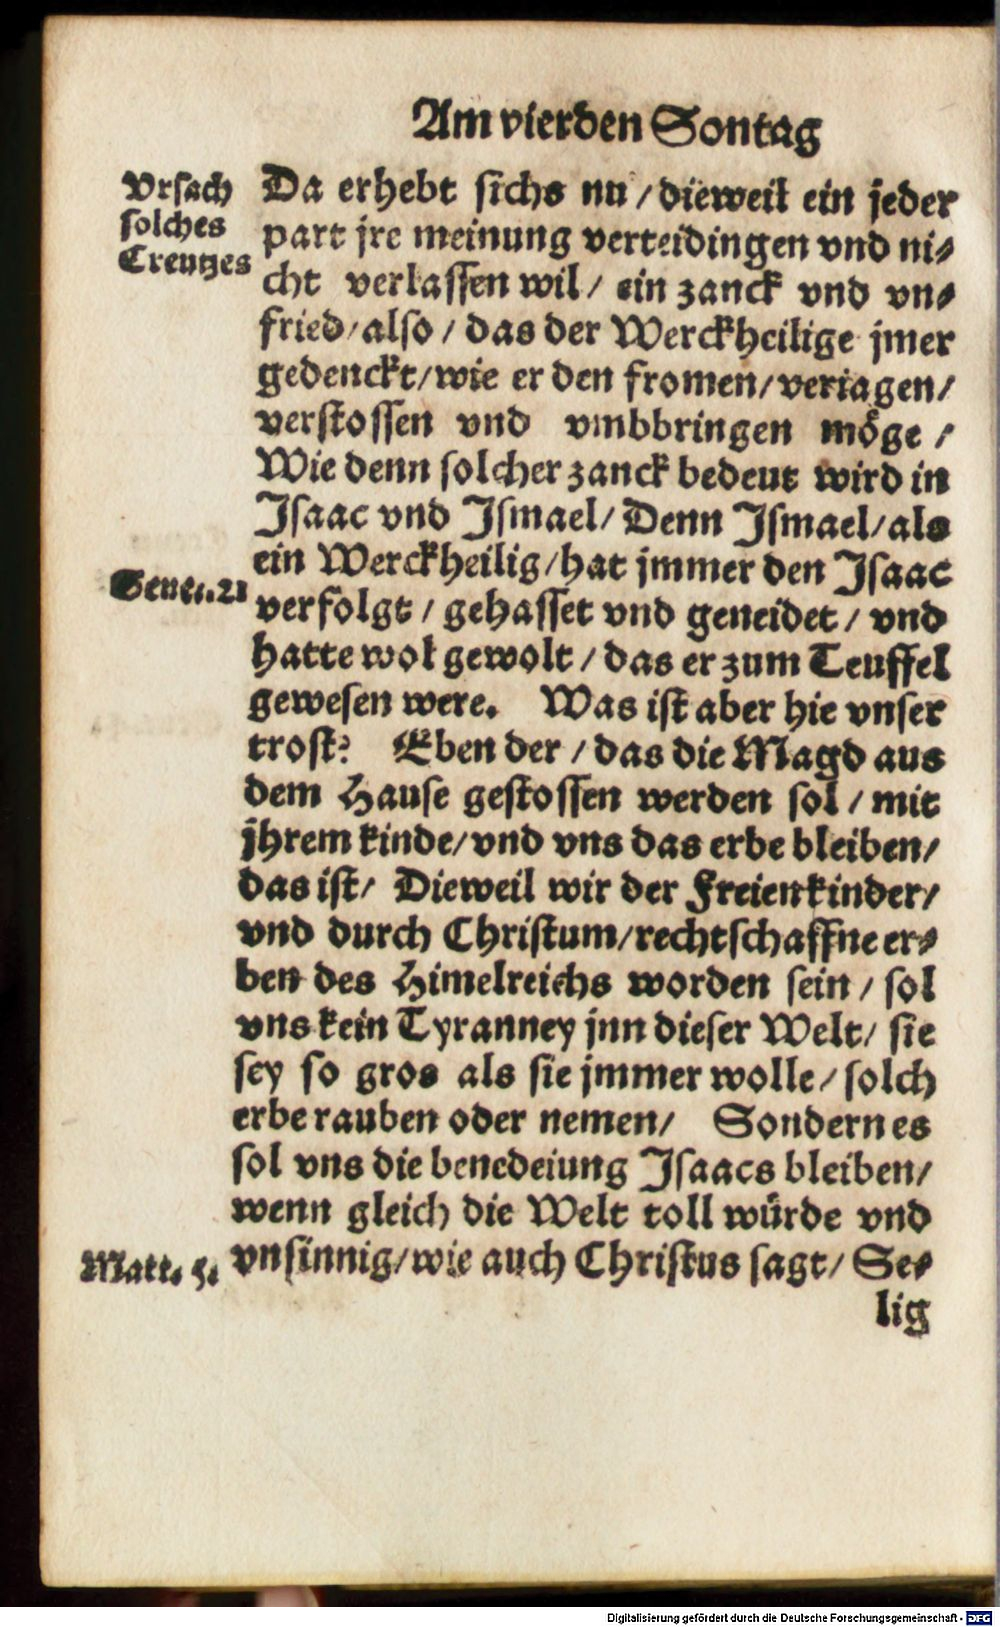 Am vierden Sontag
Vrsach
solches
Creutzes
Da erhebt sichs nu / dieweil ein jeder
part jre meinung verteidingen vnd ni⸗
cht verlassen wil / ein zanck vnd vn⸗
fried / also / das der Werckheilige jmer
gedenckt / wie er den fromen / veriagen /
verstossen vnd vmbbringen möge /
Wie denn solcher zanck bedeut wird in
Isaac vnd Ismael / Denn Ismael / als
ein Werckheilig / hat jmmer den Isaac
Genes. 21
verfolgt / gehasset vnd geneidet / vnd
hatte wol gewolt / das er zum Teuffel
gewesen were. Was ist aber hie vnser
trost? Eben der / das die Magd aus
dem Hause gestossen werden sol / mit
jhrem kinde / vnd vns das erbe bleiben /
das ist / Dieweil wir der Freien kinder /
vnd durch Christum / rechtschaffne er⸗
ben des Himelreichs worden sein / sol
vns kein Tyranney jnn dieser Welt / sie
sey so gros als sie jmmer wolle / solch
erbe rauben oder nemen / Sondern es
sol vns die benedeiung Isaacs bleiben /
wenn gleich die Welt toll würde vnd
Matt. 5.
vnsinnig / wie auch Christus sagt / Se⸗
lig
Digitalisierung gefördert durch die Deutsche Forschungsgemeinschaft - DFG